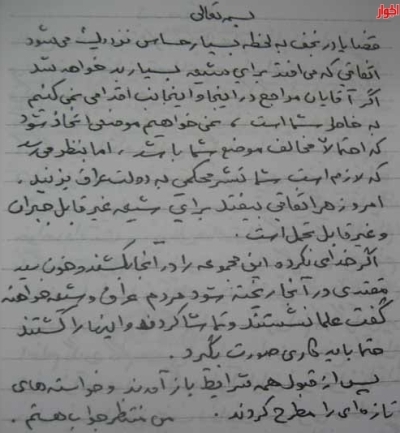 بسمه تعالی
اخبار
قضایا در نجف به لحظه بسیار حساس نزدیک می‌شود
اتفاقی که می افتد برای شیعه بسیار بد خواهد شد
اگر آقایان مراجع در اینجا و اینجانب اقدامی نمی‌کنیم
به خاطر شما است، نمی‌خواهیم موضعی اتخاذ شود
که احتمالاً مخالف موضع شما باشد، اما بنظر می‌رسد
که لازم است شما تشر محکمی به دولت عراق بزنید.
امروز هر اتفاقی بیفتد برای شیعه غیر قابل جبران
و غیر قابل تحمل است.
اگر خدای نکرده این مجموعه را در آنجا بکشند و خون سید
مقتدی در آنجا ریخته شود مردم عراق و شیعه خواهند
گفت علما نشستند و تماشا کردند و اینها را کشتند
حتما باید کاری صورت بگیرد.
پس از قبول همه شرایط باز آمدند و خواسته های
تازه‌ای را مطرح کردند. من منتظر جواب هستم.